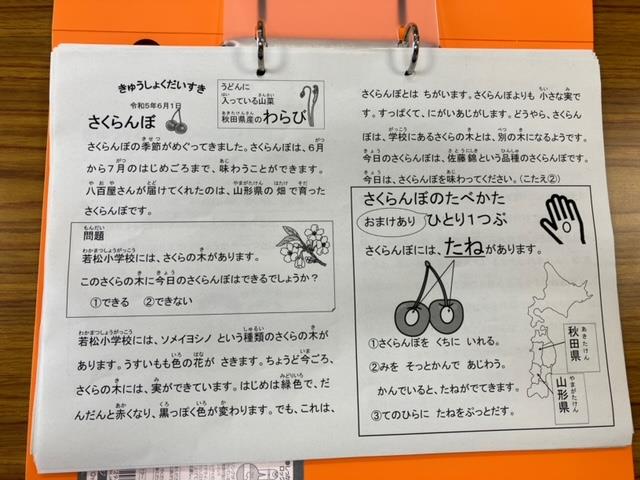 きゅうしょくだいすき
令和5年6月1日
さくらんぼ
うどんに
入っている山菜
秋田県産の わらび
さくらんぼの季節がめぐってきました。さくらんぼは、6月
から7月のはじめごろまで、味わうことができます。
八百屋さんが届けてくれたのは、山形県の畑で育った
さくらんぼです。
問題
若松小学校には、さくらの木があります。
このさくらの木に今日のさくらんぼはできるでしょうか？
①できる ②できない
若松小学校には、ソメイヨシノという種類のさくらの木が
あります。うすいもも色の花が さきます。ちょうど今ごろ、
さくらの木には、実ができています。はじめは緑色で、だ
んだんと赤くなり、黒っぽく色が変わります。でも、これは、
さくらんぼとは ちがいます。さくらんぼよりも 小さな実で
す。すっぱくて、にがいあじがします。どうやら、さくらん
ぼは、学校にあるさくらの木とは、別の木になるようです。
今日のさくらんぼは、佐藤錦という品種のさくらんぼです。
今日は、さくらんぼを味わってください。（こたえ②）
さくらんぼのたべかた
おまけあり ひとり1つぶ
さくらんぼには、たねがあります。
①さくらんぼを くちに いれる。
②みを そっとかんで あじわう。
かんでいると、たねがでてきます。
③てのひらに たねをぷっとだす。
秋田県
山形県